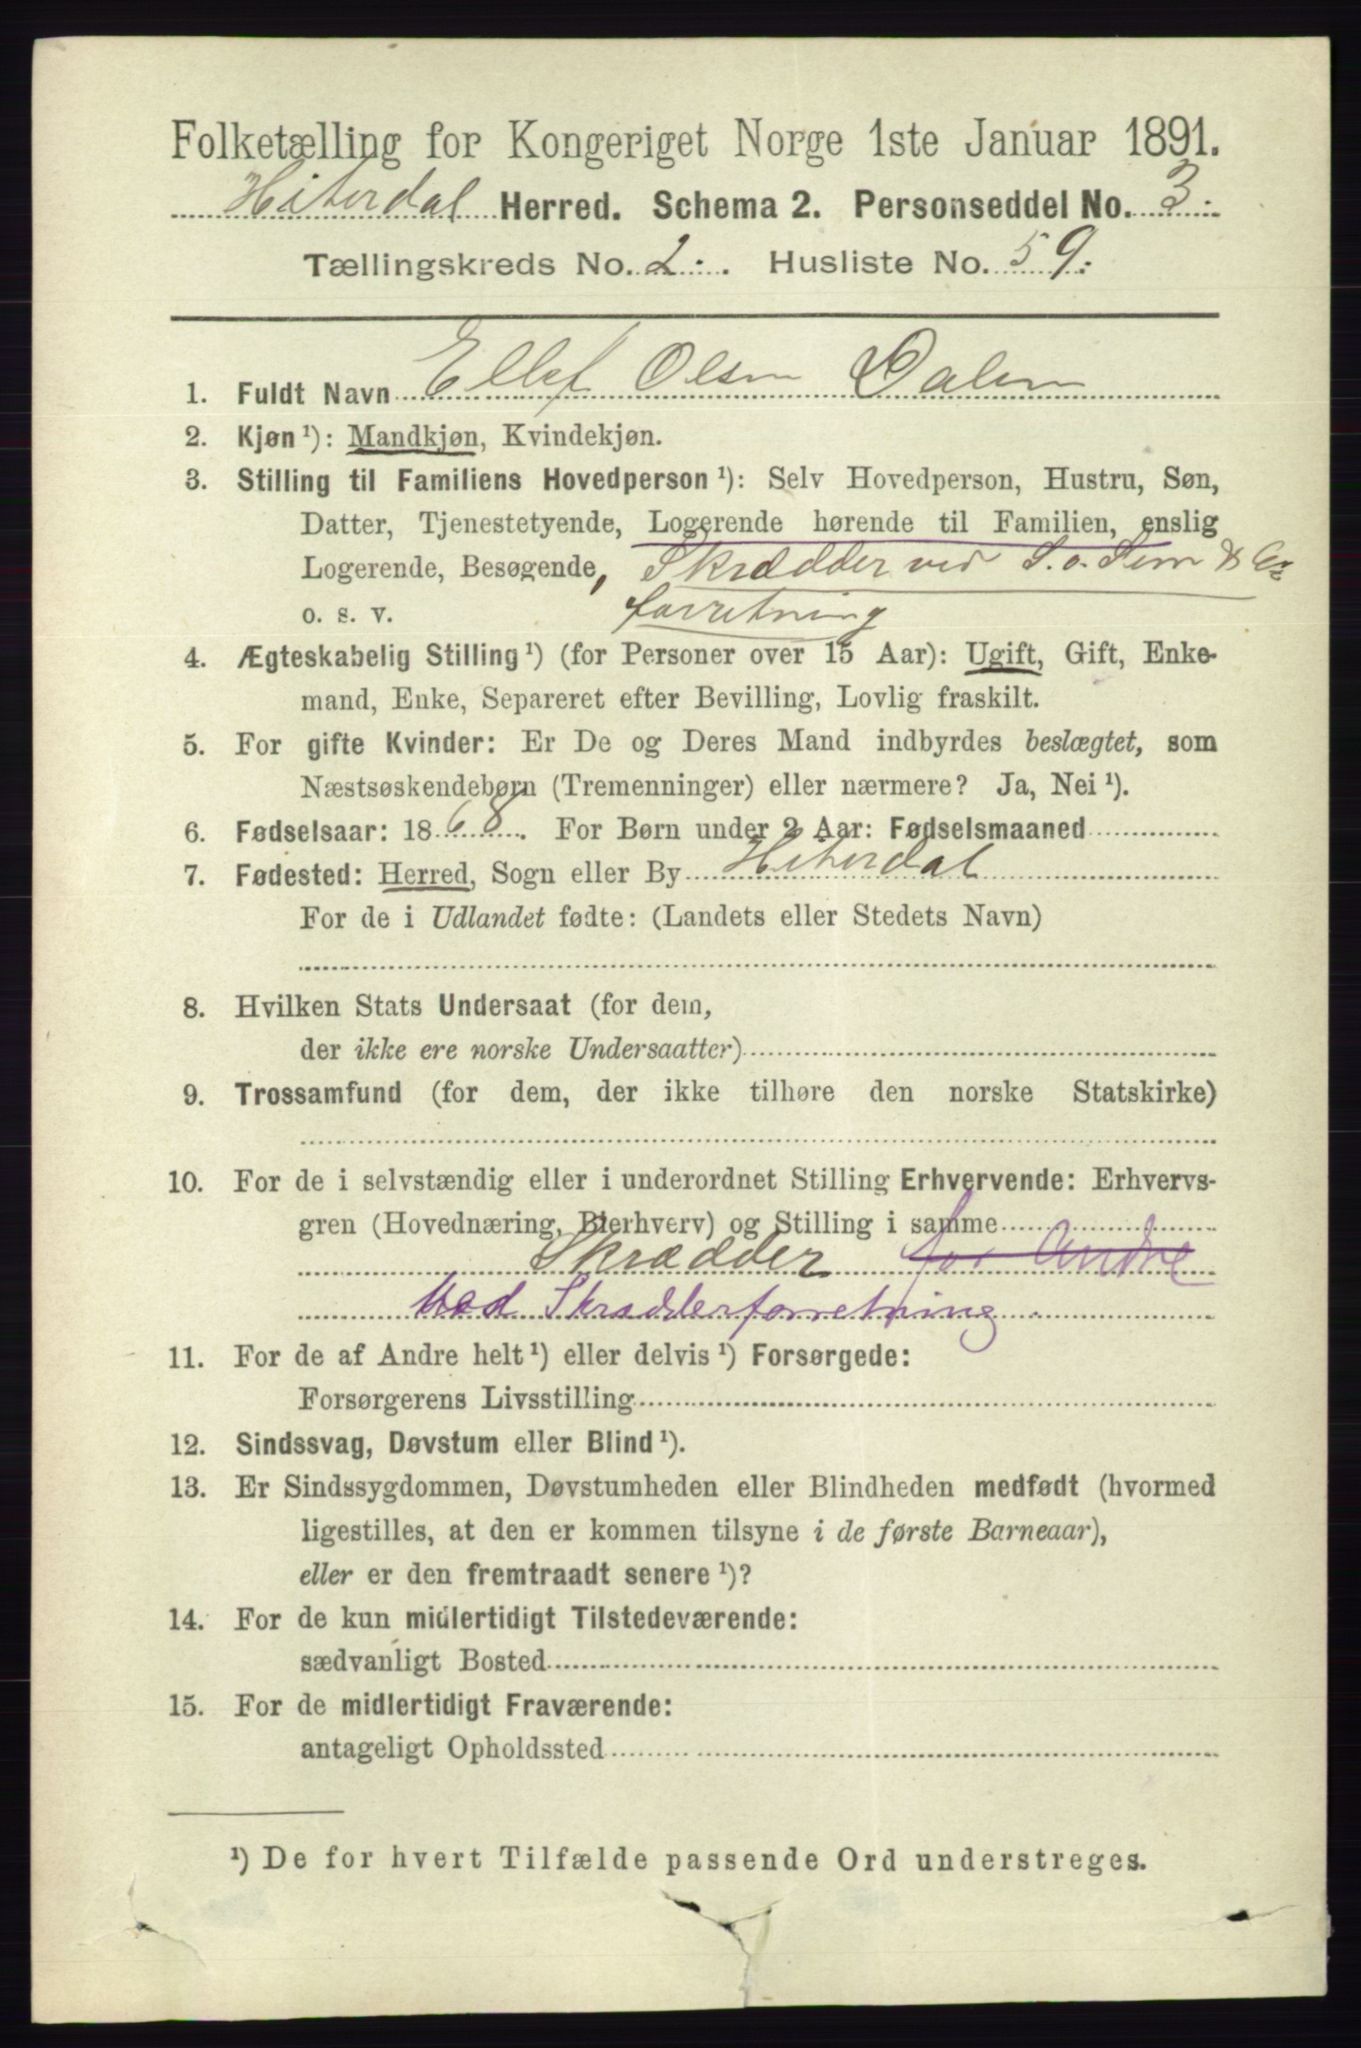 Folketælling for Kongeriget Norge 1ste Januar 1891.
Hiterdal Herred. Schema 2. Personseddel No. 3.
Tællingskreds No. 2. Husliste No. 59.
1. Fuldt Navn Ellef Olsen Dalen
2. Kjøn ¹): Mandkjøn, Kvindekjøn.
3. Stilling til Familiens Hovedperson ¹): Selv Hovedperson, Hustru, Søn,
Datter, Tjenestetyende, Logerende hørende til Familien, enslig
Logerende, Besøgende, Skrædder ved S. o. Sem & Co
o. s. v. forretning
4. Ægteskabelig Stilling ¹) (for Personer over 15 Aar): Ugift, Gift, Enke-
mand, Enke, Separeret efter Bevilling, Lovlig fraskilt.
5. For gifte Kvinder: Er De og Deres Mand indbyrdes beslægtet, som
Næstsøskendebørn (Tremenninger) eller nærmere? Ja, Nei ¹).
6. Fødselsaar: 1868. For Børn under 2 Aar: Fødselsmaaned
7. Fødested: Herred, Sogn eller By Hiterdal
For de i Udlandet fødte: (Landets eller Stedets Navn)
8. Hvilken Stats Undersaat (for dem,
der ikke ere norske Undersaatter)
9. Trossamfund (for dem, der ikke tilhøre den norske Statskirke)
10. For de i selvstændig eller i underordnet Stilling Erhvervende: Erhvervs-
gren (Hovednæring, Bierhverv) og Stilling i samme
Skrædder for Andre
ved Skrædderforretning.
11. For de af Andre helt ¹) eller delvis ¹) Forsørgede:
Forsørgerens Livsstilling
12. Sindssvag, Døvstum eller Blind ¹).
13. Er Sindssygdommen, Døvstumheden eller Blindheden medfødt (hvormed
ligestilles, at den er kommen tilsyne i de første Barneaar),
eller er den fremtraadt senere ¹)?
14. For de kun midlertidigt Tilstedeværende:
sædvanligt Bosted
15. For de midlertidigt Fraværende:
antageligt Opholdssted
¹) De for hvert Tilfælde passende Ord understreges.